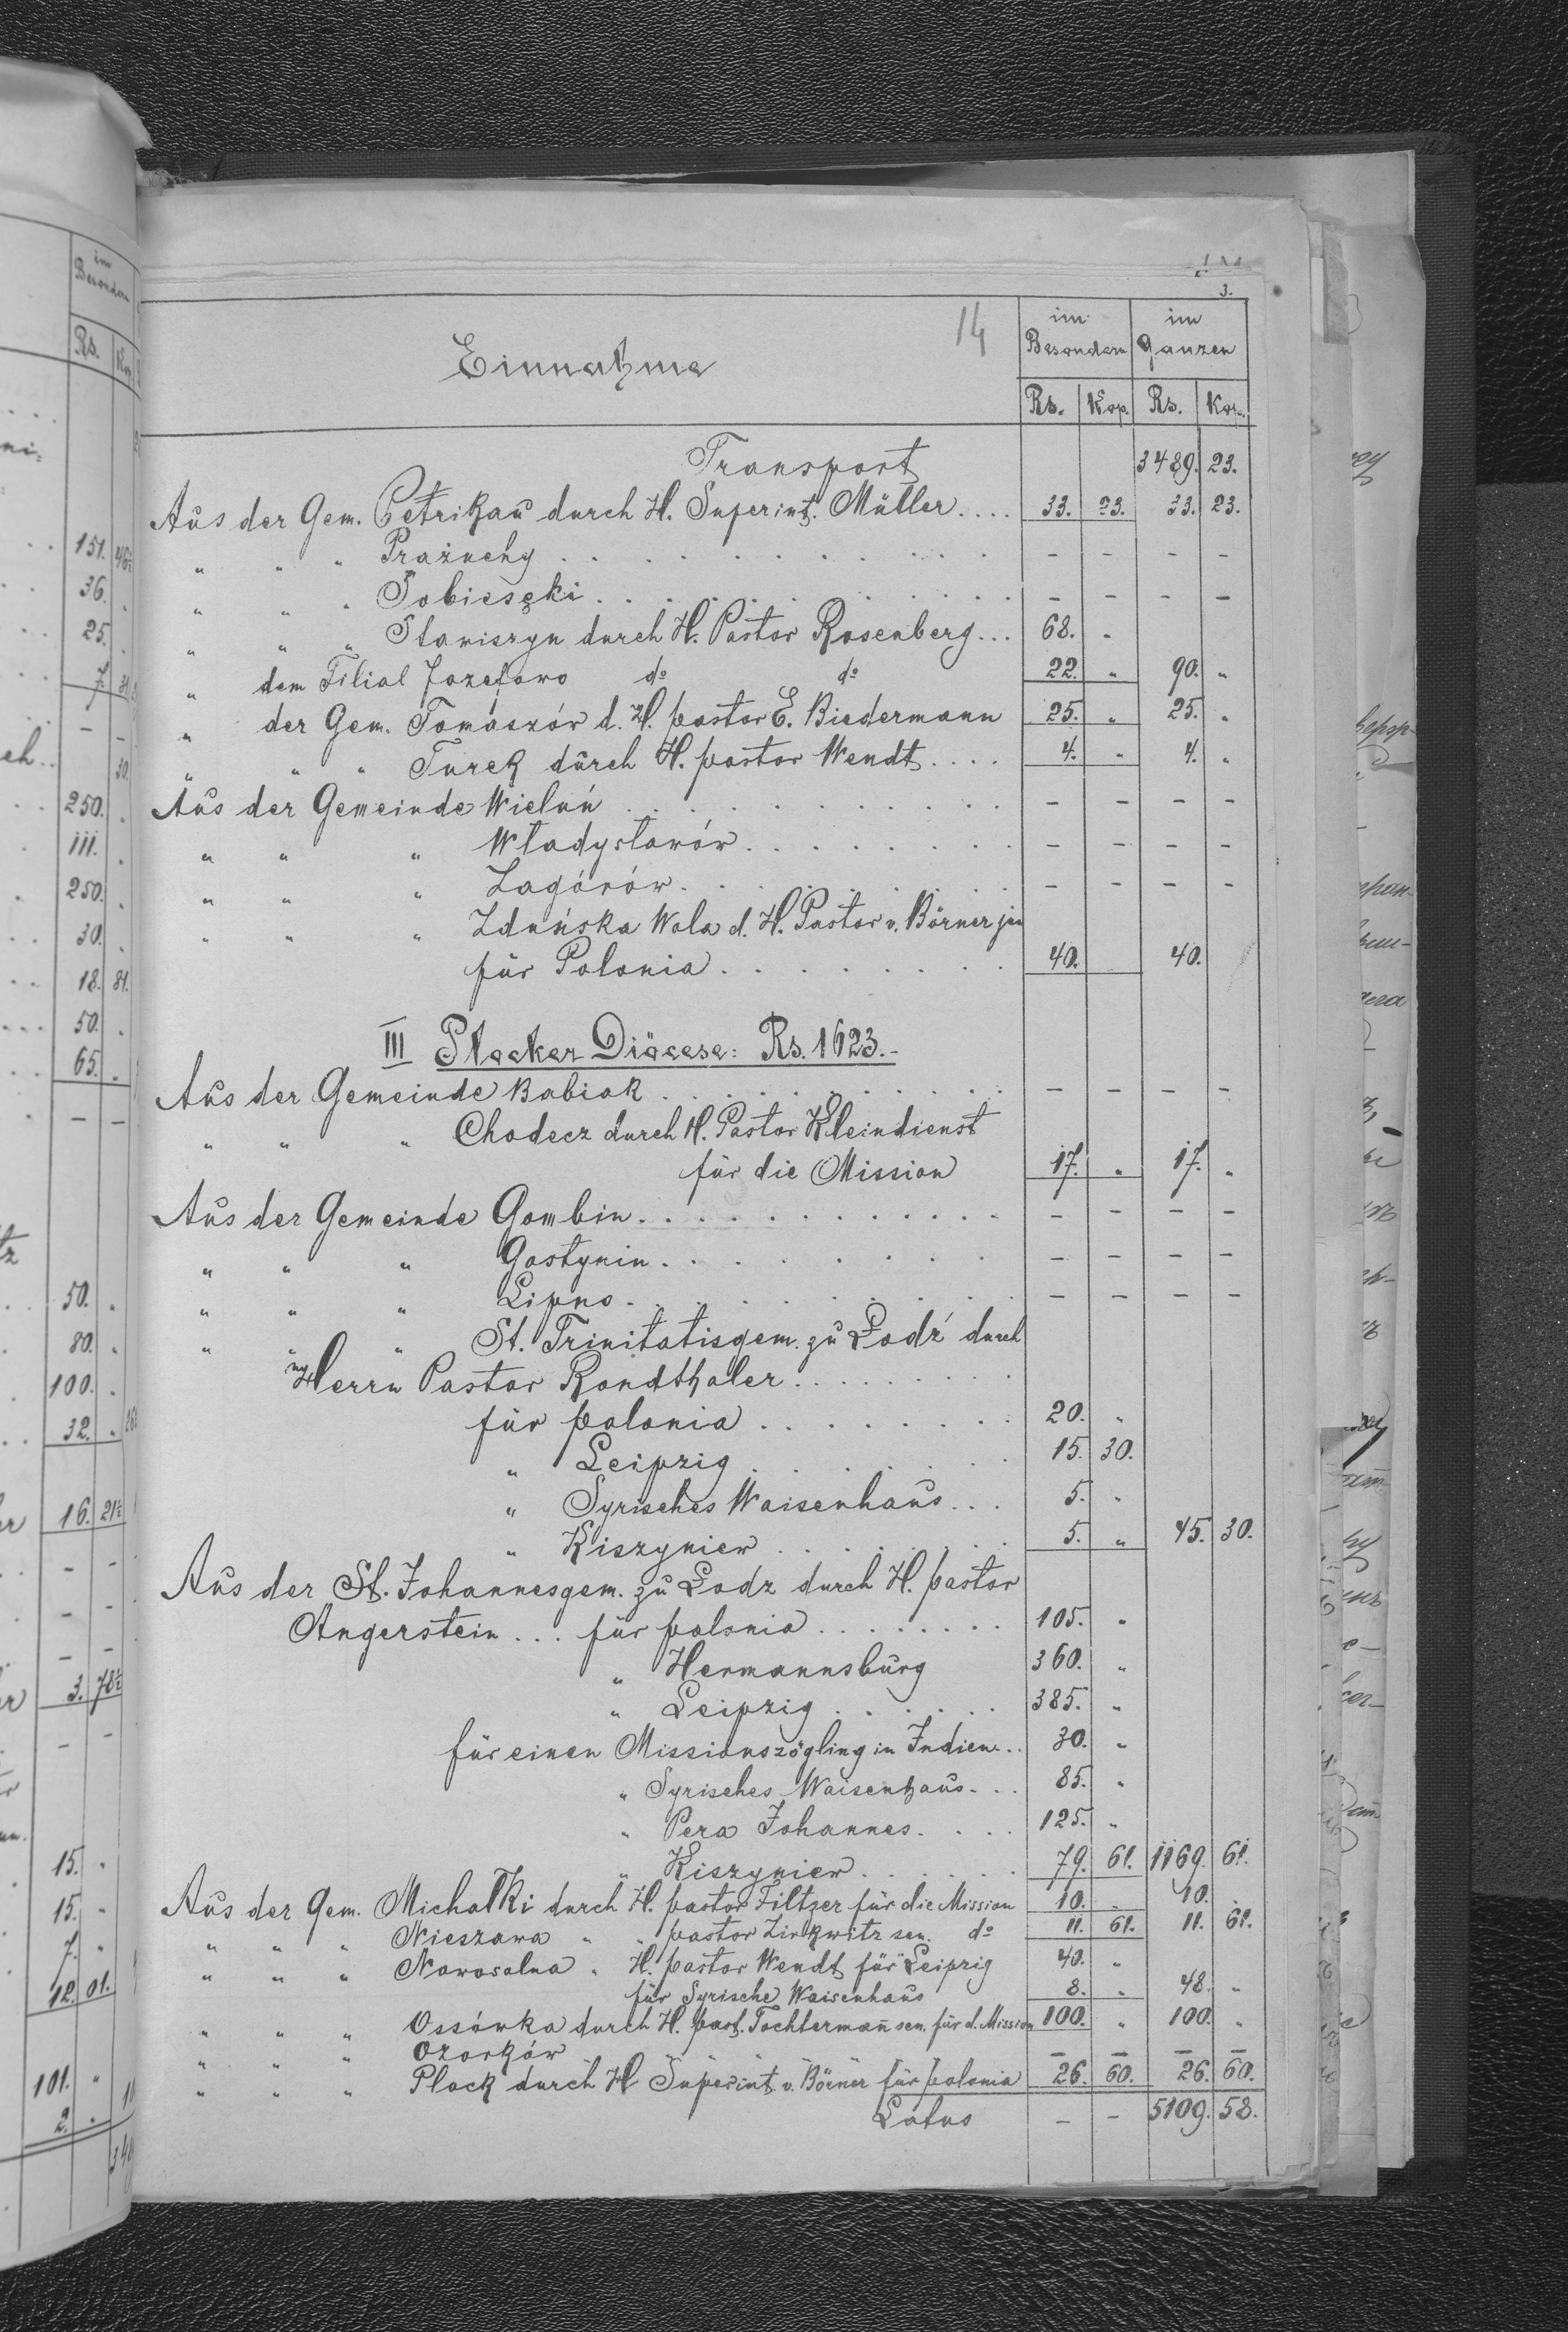 3.
14
Einnahme
im Besondern
im Ganzen
Rs. Kop. Rs. Kop.
Transport 3489. 23.
Aus der Gem. Petrikau durch H. Superint. Müller.... 33. 23. 33. 23.
" " " Prażuchy - - - -
" " " Sobiesęki - - - -
" " " Stawiszyn durch H. Pastor Rosenberg... 68. "
" dem Filial Jozefowo do do 22. " 90. "
" der Gem. Tomaszów d. H. pastor E. Biedermann 25. " 25. "
" " " Turek durch H. pastor Wendt.... 4. " 4. "
Aus der Gemeinde Wieluń - - - -
" " " Władysławów - - - -
" " " Zagórów - - - -
" " " Zduńska Wola d. H. Pastor v. Börner jun
für Polonia 40. 40.
III Plocker Diöcese: Rs. 1623.-
Aus der Gemeinde Babiak - - - -
" " " Chodecz durch H. Pastor Kleindienst
für die Mission 17. " 17. "
Aus der Gemeinde Gombin - - - -
" " " Gostynin - - - -
" " " Lipno - - - -
" " " St. Trinitatisgem. zu Łodź durch
Herrn Pastor Rondthaler
für polonia 20. "
" Leipzig 15. 30.
" Syrisches Waisenhaus... 5. "
" Kiszyniew 5. " 45. 30.
Aus der St. Johannesgem. zu Łodz durch H. pastor
Angerstein... für polonia 105. "
" Hermannsburg 360. "
" Leipzig 385. "
für einen Missionszögling in Indien.. 30. "
" Syrisches Waisenhaus... 85. "
" Pera Johannes.... 125. "
" Kiszyniew 79. 61. 1169. 61.
Aus der Gem. Michałki durch H. pastor Filtzer für die Mission 10. " 10. "
" " " Nieszawa " " pastor Zirkwitz sen. do 11. 61. 11. 61.
" " " Nowosolna " H. pastor Wendt für Leipzig 40. "
für Syrische Waisenhaus 8. " 48. "
" " " Ossówka durch H. past. Tochtermañ sen. für d. Mission 100. " 100. "
" " " Ozorków - - - -
" " " Plock durch H Superint. v. Börner für polonia 26. 60. 26. 60.
Latus - - 5109. 58.
im
Besondern
Rs. Kop
151. 46½
36. "
25. "
7.
- -
30.
250. "
111. "
250. "
30. "
18. 81.
50. "
65. "
- -
50. "
80. "
100. "
32. "
16. 21½
- -
- -
- -
3. 78½
- -
15. "
15. "
7. "
12. 01.
101. "
2. "